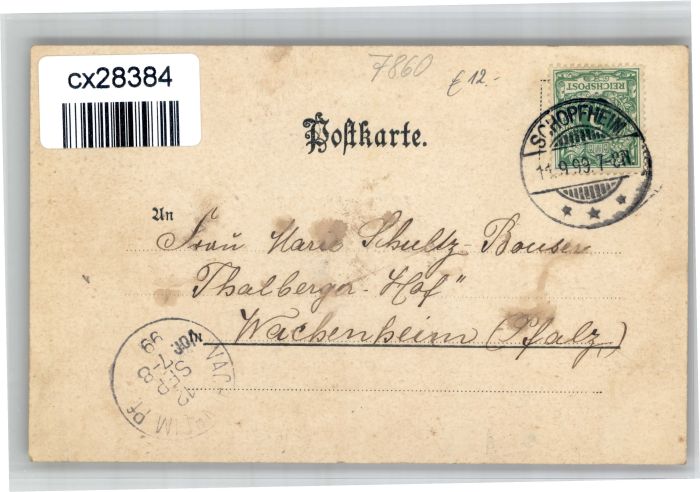 cx28384
7860
£ 12.-
REICHSPOST
Postkarte.
SCHOPFHEIM
11.9.99. 7-8 N.
An
Frau Marie Schultz-Bouser
"Thalberger-Hof"
in Wachenheim (Pfalz)
12 SEP 99
VOR 7-8